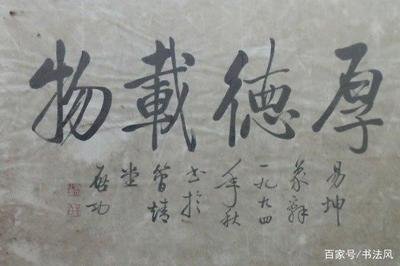 厚德載物
易坤
象辭
一九九四
年秋
书於
堂
启功
百家号/书法风